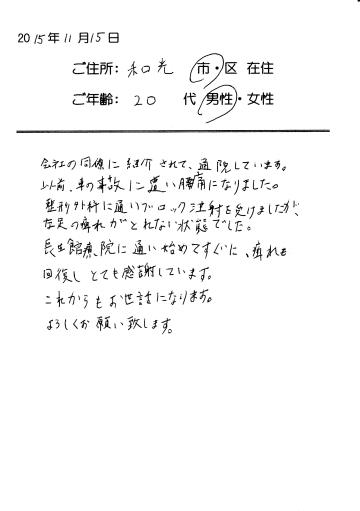 2015年11月15日
ご住所: 和光 市・区 在住
ご年齢: 20 代 男性・女性
会社の同僚に紹介されて、通院しています。
以前、車の事故に遭い腰痛になりました。
整形外科に通いブロック注射を受けましたが、
左足の痺れがとれない状態でした。
長生館療院に通い始めてすぐに、痺れも
回復しとても感謝しています。
これからもお世話になります。
よろしくお願い致します。